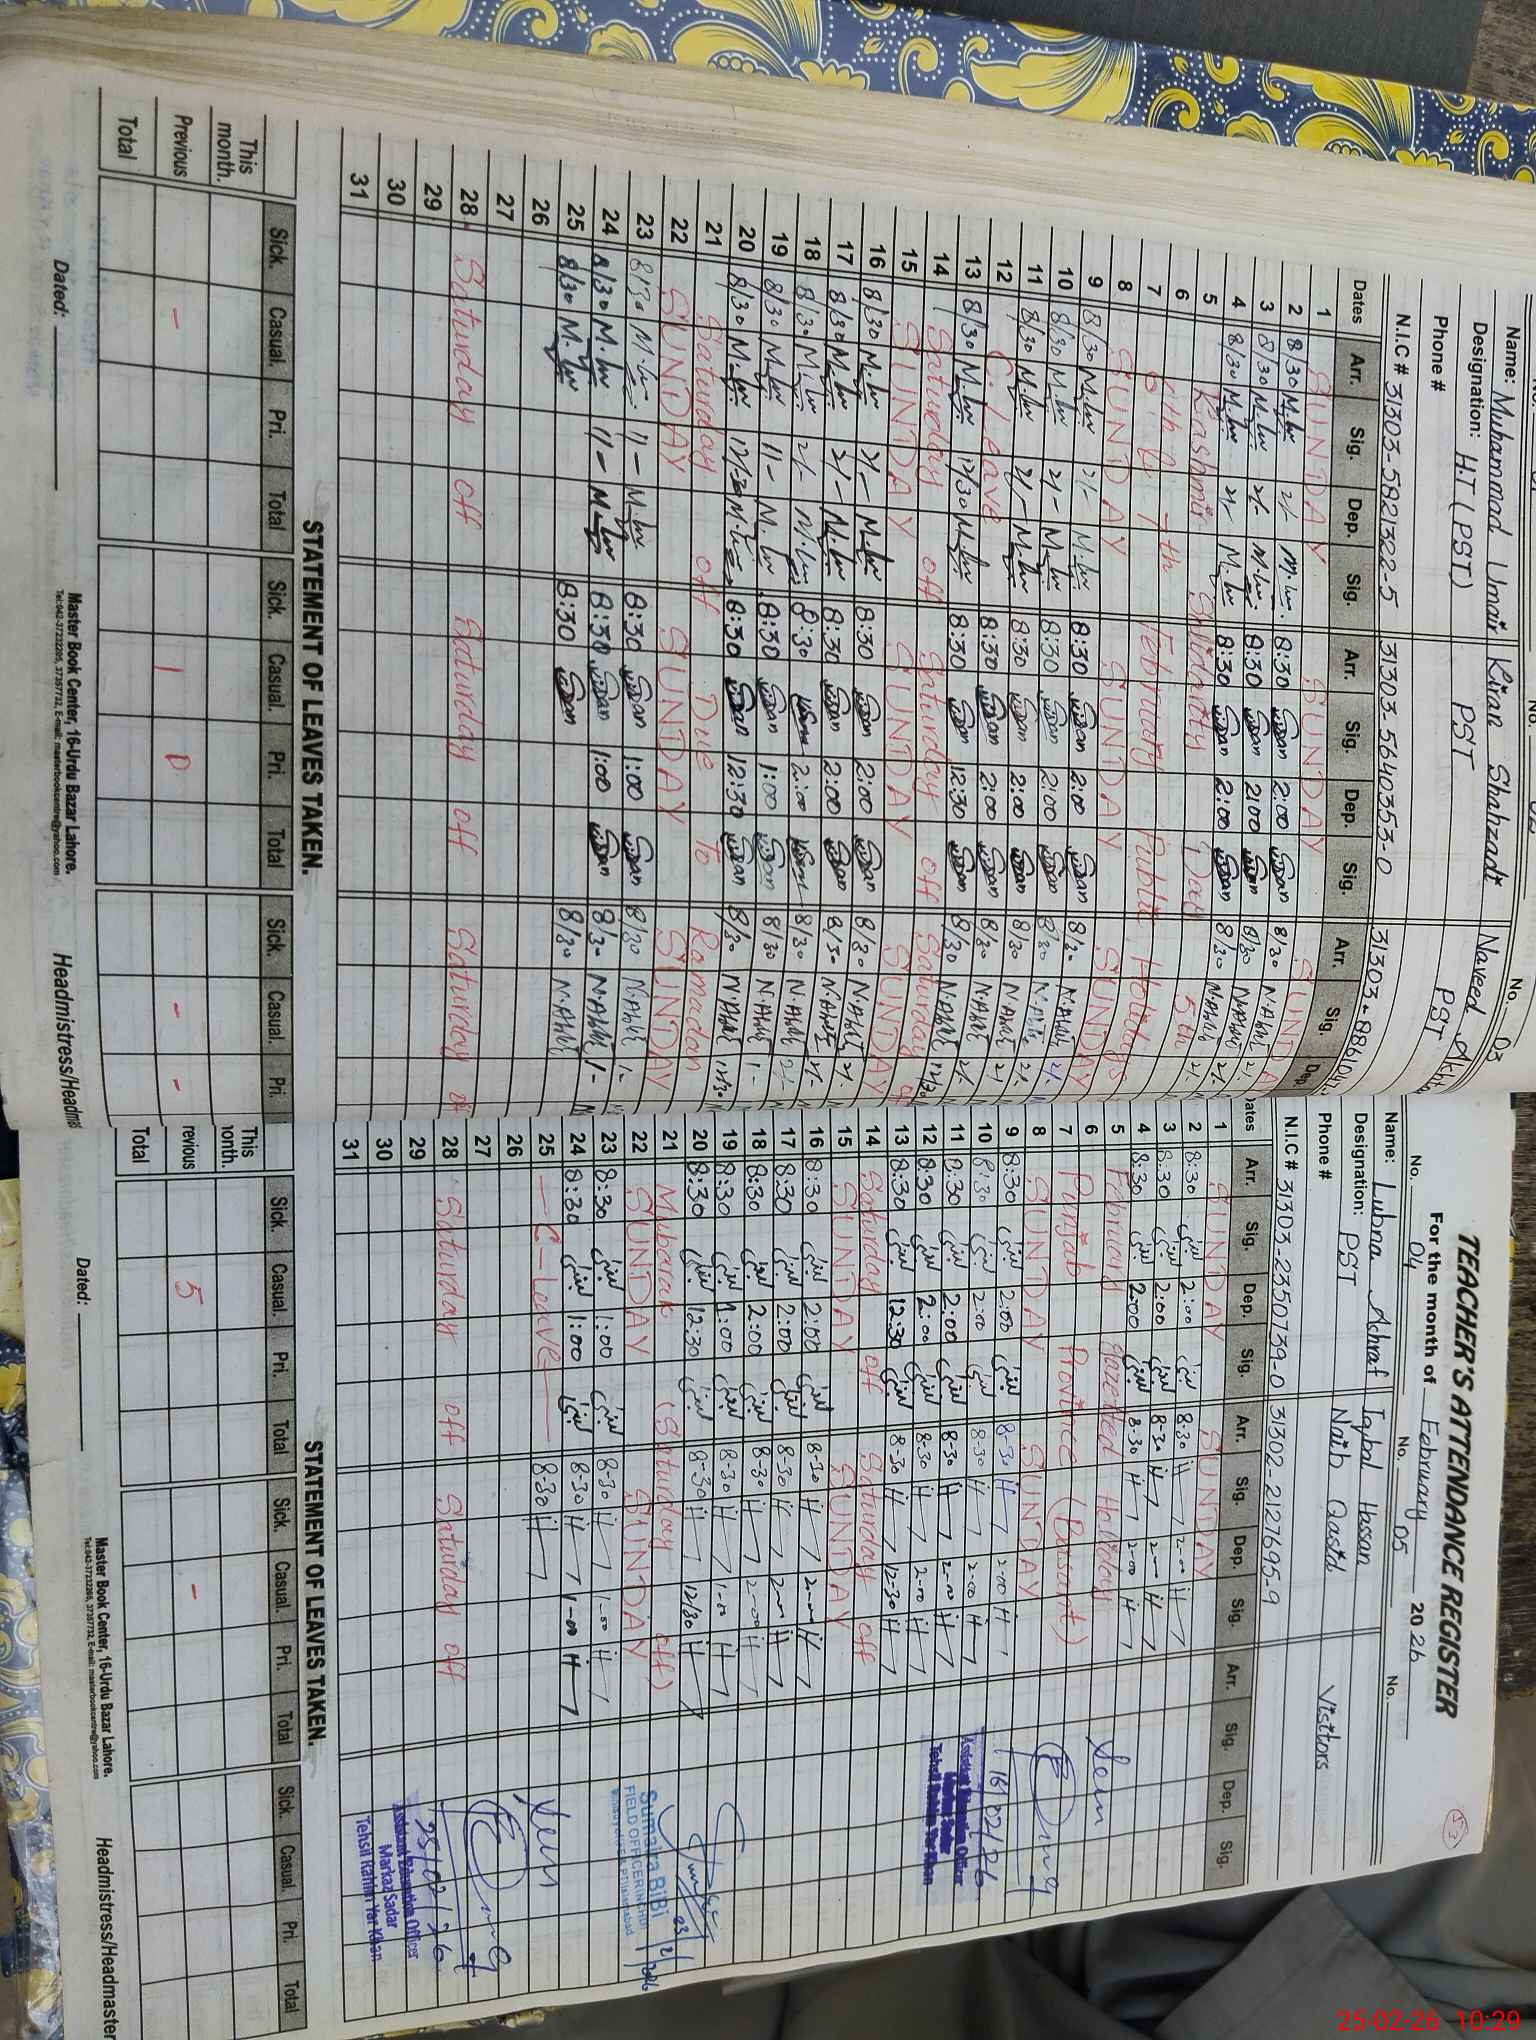 No. No. No. 03
Name: Muhammad Umair Kiran Shahzadi Naveed Akhta
Designation: HT (PST) PST PST
Phone #
N.I.C # 31303-5821322-5 31303-5640353-0 31303-88610
Dates Arr. Sig. Dep. Sig. Arr. Sig. Dep. Sig. Arr. Sig. Dep
1 SUNDAY SUNDAY SUNDA
2 8/30 2/- 8:30 2:00 8/30 2/-
3 8/30 2/- 8:30 2:00 8/30 2/-
4 8/30 2/- 8:30 2:00 8/30 2/-
5 Kashmir Solidarity Day 5th
6 6th & 7th February Public Holidays
7
8 SUNDAY SUNDAY SUNDAY
9 8/30 2/- 8:30 2:00 8/30 2/-
10 8/30 2/- 8:30 2:00 8/30 2/-
11 8/30 2/- 8:30 2:00 8/30 2/-
12 C/Leave 8:30 2:00 8/30 2/-
13 8/30 12/30 8:30 12:30 8/30 12/30
14 Saturday off Saturday off Saturday
15 SUNDAY SUNDAY SUNDAY
16 8/30 2/- 8:30 2:00 8/30 2/-
17 8/30 2/- 8:30 2:00 8/30 2/-
18 8/30 2/- 8:30 2:00 8/30 2/-
19 8/30 1/- 8:30 1:00 8/30 1-
20 8/30 12/30 8:30 12:30 8/30 12/30
21 Saturday off Due To Ramadan
22 SUNDAY SUNDAY SUNDAY
23 8/30 1/- 8:30 1:00 8/30 1-
24 8/30 1/- 8:30 1:00 8/30 1-
25 8/30 8:30 8/30
26
27
28 Saturday off Saturday off Saturday
29
30
31
STATEMENT OF LEAVES TAKEN.
Sick. Casual. Pri. Total Sick. Casual. Pri. Total Sick. Casual. Pri.
This month.
Previous - 1 0 - -
Total
Dated:
Master Book Center, 16-Urdu Bazar Lahore.
Tel:042-37232205, 37357732, E-mail: masterbookcentre@yahoo.com
Headmistress/Headm
53
TEACHER'S ATTENDANCE REGISTER
For the month of February 2026
No. 04 No. 05 No.
Name: Lubna Ashraf Iqbal Hassan
Designation: PST Naib Qasid Visitors
Phone #
N.I.C # 31303-2350739-0 31302-2127695-9
ates Arr. Sig. Dep. Sig. Arr. Sig. Dep. Sig. Arr. Sig. Dep. Sig.
1 SUNDAY SUNDAY
2 8:30 لبنیٰ 2:00 لبنیٰ 8-30 2-00
3 8:30 لبنیٰ 2:00 لبنیٰ 8-30 2-00
4 8:30 لبنیٰ 2:00 لبنیٰ 8-30 2-00
5 February gazetted Holiday
6 Punjab Province (Basant)
7
8 SUNDAY SUNDAY
9 8:30 لبنیٰ 2:00 لبنیٰ 8-30 2-00
10 8:30 لبنیٰ 2:00 لبنیٰ 8-30 2-00
11 8:30 لبنیٰ 2:00 لبنیٰ 8-30 2-00
12 8:30 لبنیٰ 2:00 لبنیٰ 8-30 2-00
13 8:30 لبنیٰ 12:30 لبنیٰ 8-30 12-30
14 Saturday off Saturday off
15 SUNDAY SUNDAY
16 8:30 لبنیٰ 2:00 لبنیٰ 8-30 2-00
17 8:30 لبنیٰ 2:00 لبنیٰ 8-30 2-00
18 8:30 لبنیٰ 2:00 لبنیٰ 8-30 2-00
19 8:30 لبنیٰ 1:00 لبنیٰ 8-30 1-00
20 8:30 لبنیٰ 12:30 لبنیٰ 8-30 12/30
21 Mubarak (Saturday off)
22 SUNDAY SUNDAY
23 8:30 لبنیٰ 1:00 لبنیٰ 8-30 1-00
24 8:30 لبنیٰ 1:00 لبنیٰ 8-30 1-00
25 C-Leave 8-30
26
27
28 Saturday off Saturday off
29
30
31
Seen
16/02/26
Assistant Education Officer
Markaz Sadar
Tehsil Rahim Yar Khan
23/2/2026
Sumaira BiBi
FIELD OFFICER
Seen
25/02/26
Assistant Education Officer
Markaz Sadar
Tehsil Rahim Yar Khan
STATEMENT OF LEAVES TAKEN.
Sick. Casual. Pri. Total Sick. Casual. Pri. Total Sick. Casual. Pri. Total
This onth.
revious 5 -
Total
Dated:
Master Book Center, 16-Urdu Bazar Lahore.
Tel:042-37232205, 37357732, E-mail: masterbookcentre@yahoo.com
Headmistress/Headmaster
25-02-26 10:29